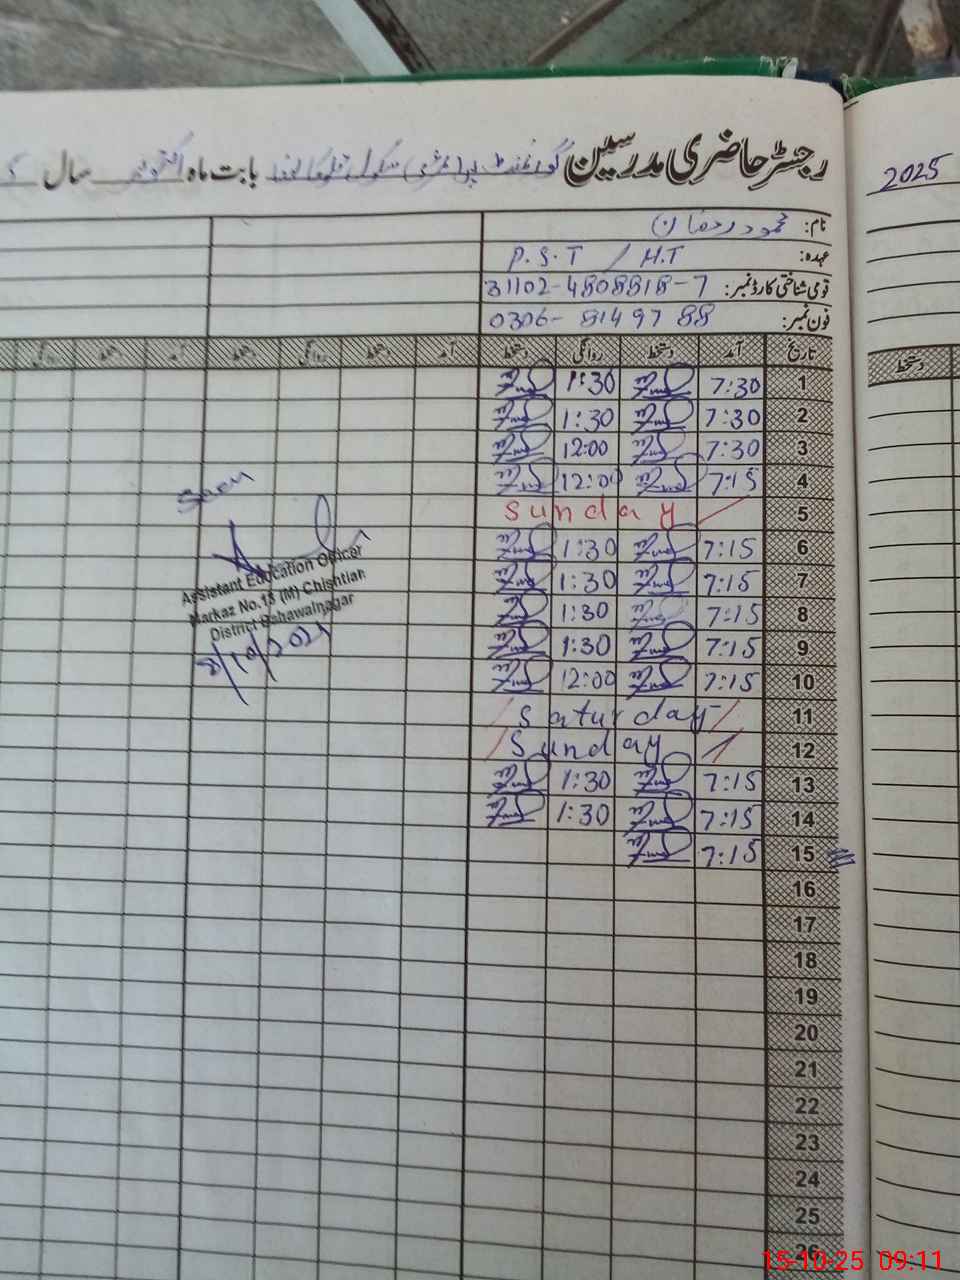 رجسٹر حاضری مدرسین گورنمنٹ پرائمری سکول بابت ماہ اکتوبر سال
2025
نام: محمود رمضان
عہدہ: P.S.T / H.T
قومی شناختی کارڈ نمبر: 31102-4808818-7
فون نمبر: 0306-8149788
تاریخ آمد دستخط روانگی دستخط آمد دستخط روانگی دستخط آمد دستخط روانگی
دستخط
1 7:30 1:30
2 7:30 1:30
3 7:30 12:00
4 7:15 12:00
5 Sunday
6 7:15 1:30
7 7:15 1:30
8 7:15 1:30
9 7:15 1:30
10 7:15 12:00
11 Saturday
12 Sunday
13 7:15 1:30
14 7:15 1:30
15 7:15
16
17
18
19
20
21
22
23
24
25
26
Seen
Assistant Education Officer
Markaz No.13 (M) Chishtian
District Bahawalnagar
8/10/2025
15-10-25 09:11